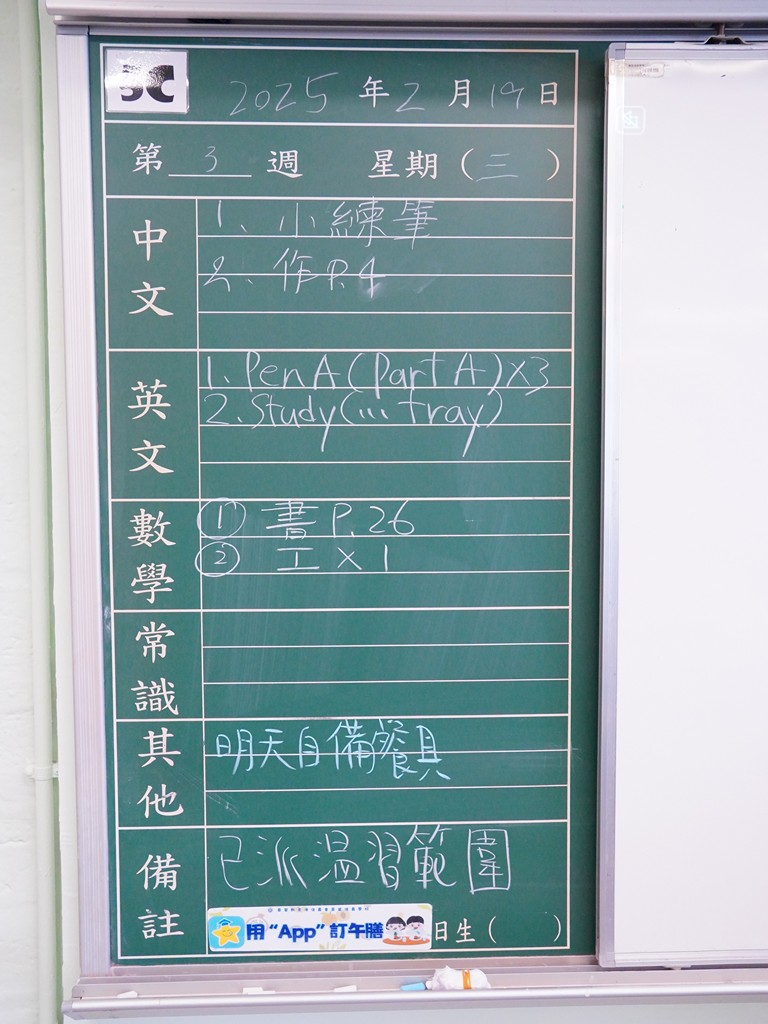 5C
2025 年 2 月 19 日
第 3 週 星期（三）
中文
1、小練筆
2、作P.4
英文
1. Pen A (Part A) x3
2. Study (... tray)
數學
① 書 P.26
② 工 x 1
常識
其他
明天自備餐具
備註
已派溫習範圍
用“App”訂午膳
日生（ ）